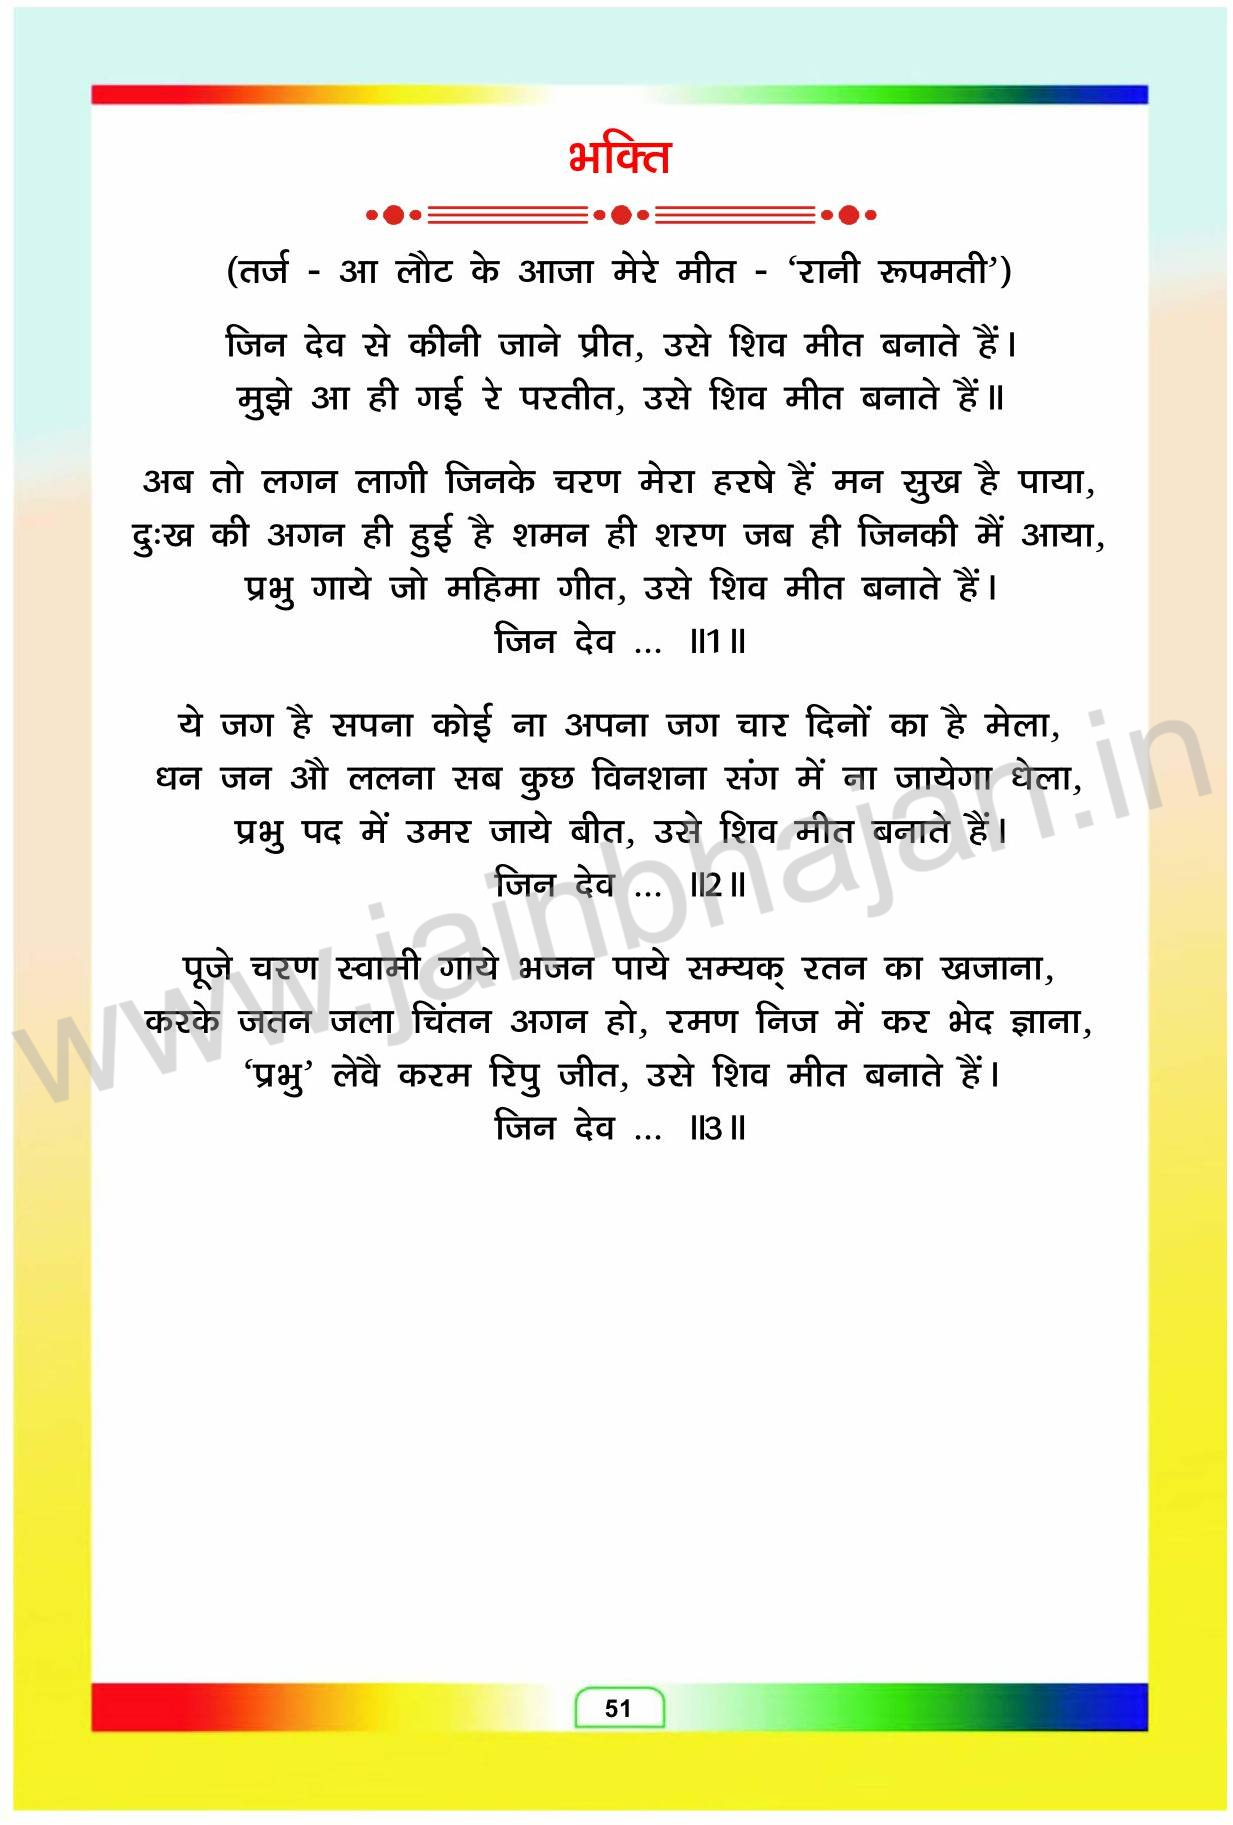 भक्ति
(तर्ज - आ लौट के आजा मेरे मीत - ‘रानी रूपमती’)
जिन देव से कीनी जाने प्रीत, उसे शिव मीत बनाते हैं।
मुझे आ ही गई रे परतीत, उसे शिव मीत बनाते हैं॥
अब तो लगन लागी जिनके चरण मेरा हरषे हैं मन सुख है पाया,
दुःख की अगन ही हुई है शमन ही शरण जब ही जिनकी मैं आया,
प्रभु गाये जो महिमा गीत, उसे शिव मीत बनाते हैं।
जिन देव ... ॥1॥
ये जग है सपना कोई ना अपना जग चार दिनों का है मेला,
धन जन औ ललना सब कुछ विनशना संग में ना जायेगा धेला,
प्रभु पद में उमर जाये बीत, उसे शिव मीत बनाते हैं।
जिन देव ... ॥2॥
पूजे चरण स्वामी गाये भजन पाये सम्यक् रतन का खजाना,
करके जतन जला चिंतन अगन हो, रमण निज में कर भेद ज्ञाना,
‘प्रभु’ लेवै करम रिपु जीत, उसे शिव मीत बनाते हैं।
जिन देव ... ॥3॥
www.jainbhajan.in
51